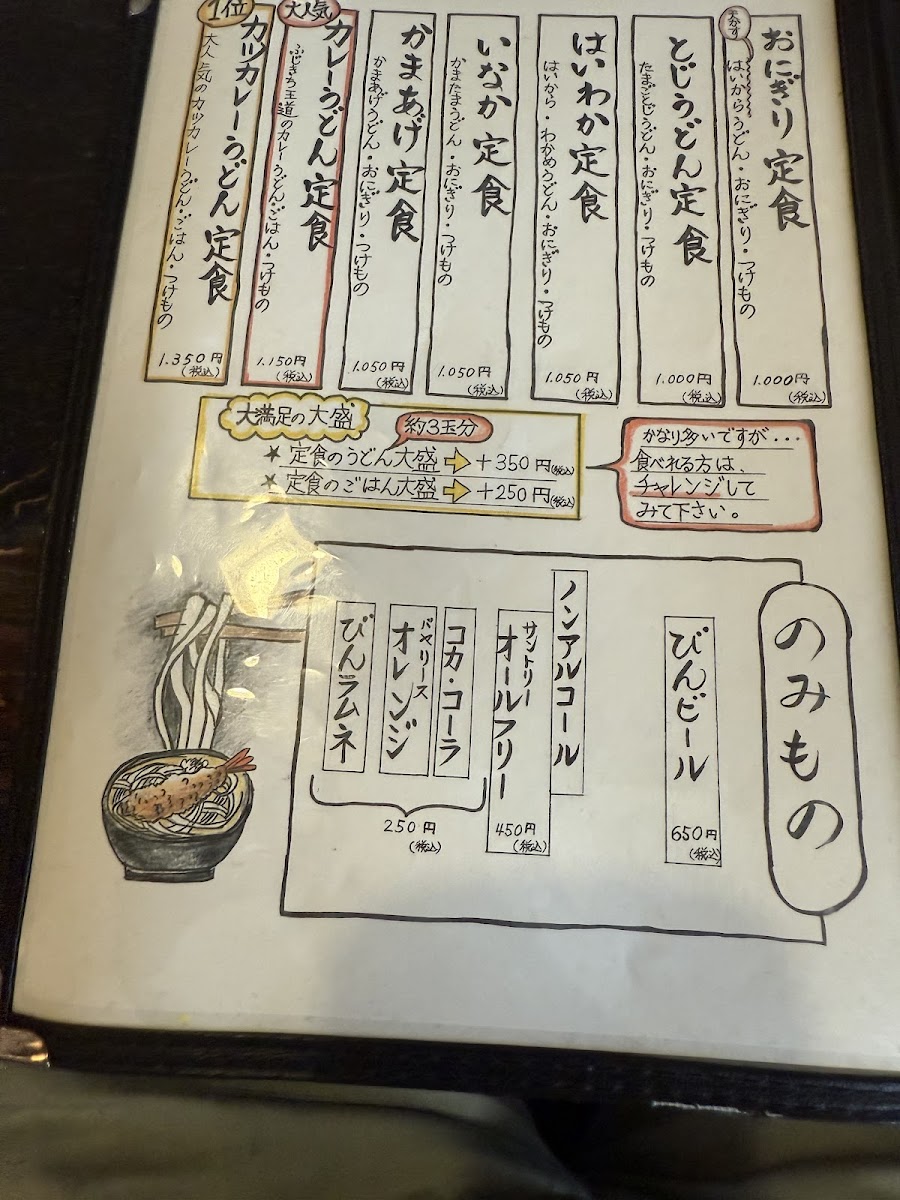 天かす
おにぎり定食
はいからうどん・おにぎり・つけもの
1.000円
(税込)
とじうどん定食
たまごとじうどん・おにぎり・つけもの
1.000円
(税込)
はいわか定食
はいから・わかめうどん・おにぎり・つけもの
1.050円
(税込)
いなか定食
かまたまうどん・おにぎり・つけもの
1.050円
(税込)
かまあげ定食
かまあげうどん・おにぎり・つけもの
1.050円
(税込)
大人気
カレーうどん定食
ふじきち王道のカレーうどん・ごはん・つけもの
1.150円
(税込)
1位
カツカレーうどん定食
大人気のカツカレーうどん・ごはん・つけもの
1.350円
(税込)
大満足の大盛
約3玉分
★定食のうどん大盛⇨+350円(税込)
★定食のごはん大盛⇨+250円(税込)
かなり多いですが...
食べれる方は、
チャレンジして
みて下さい。
のみもの
びんビール
650円
(税込)
ノンアルコール
サントリー
オールフリー
450円
(税込)
コカ・コーラ
バヤリース
オレンジ
びんラムネ
250円
(税込)